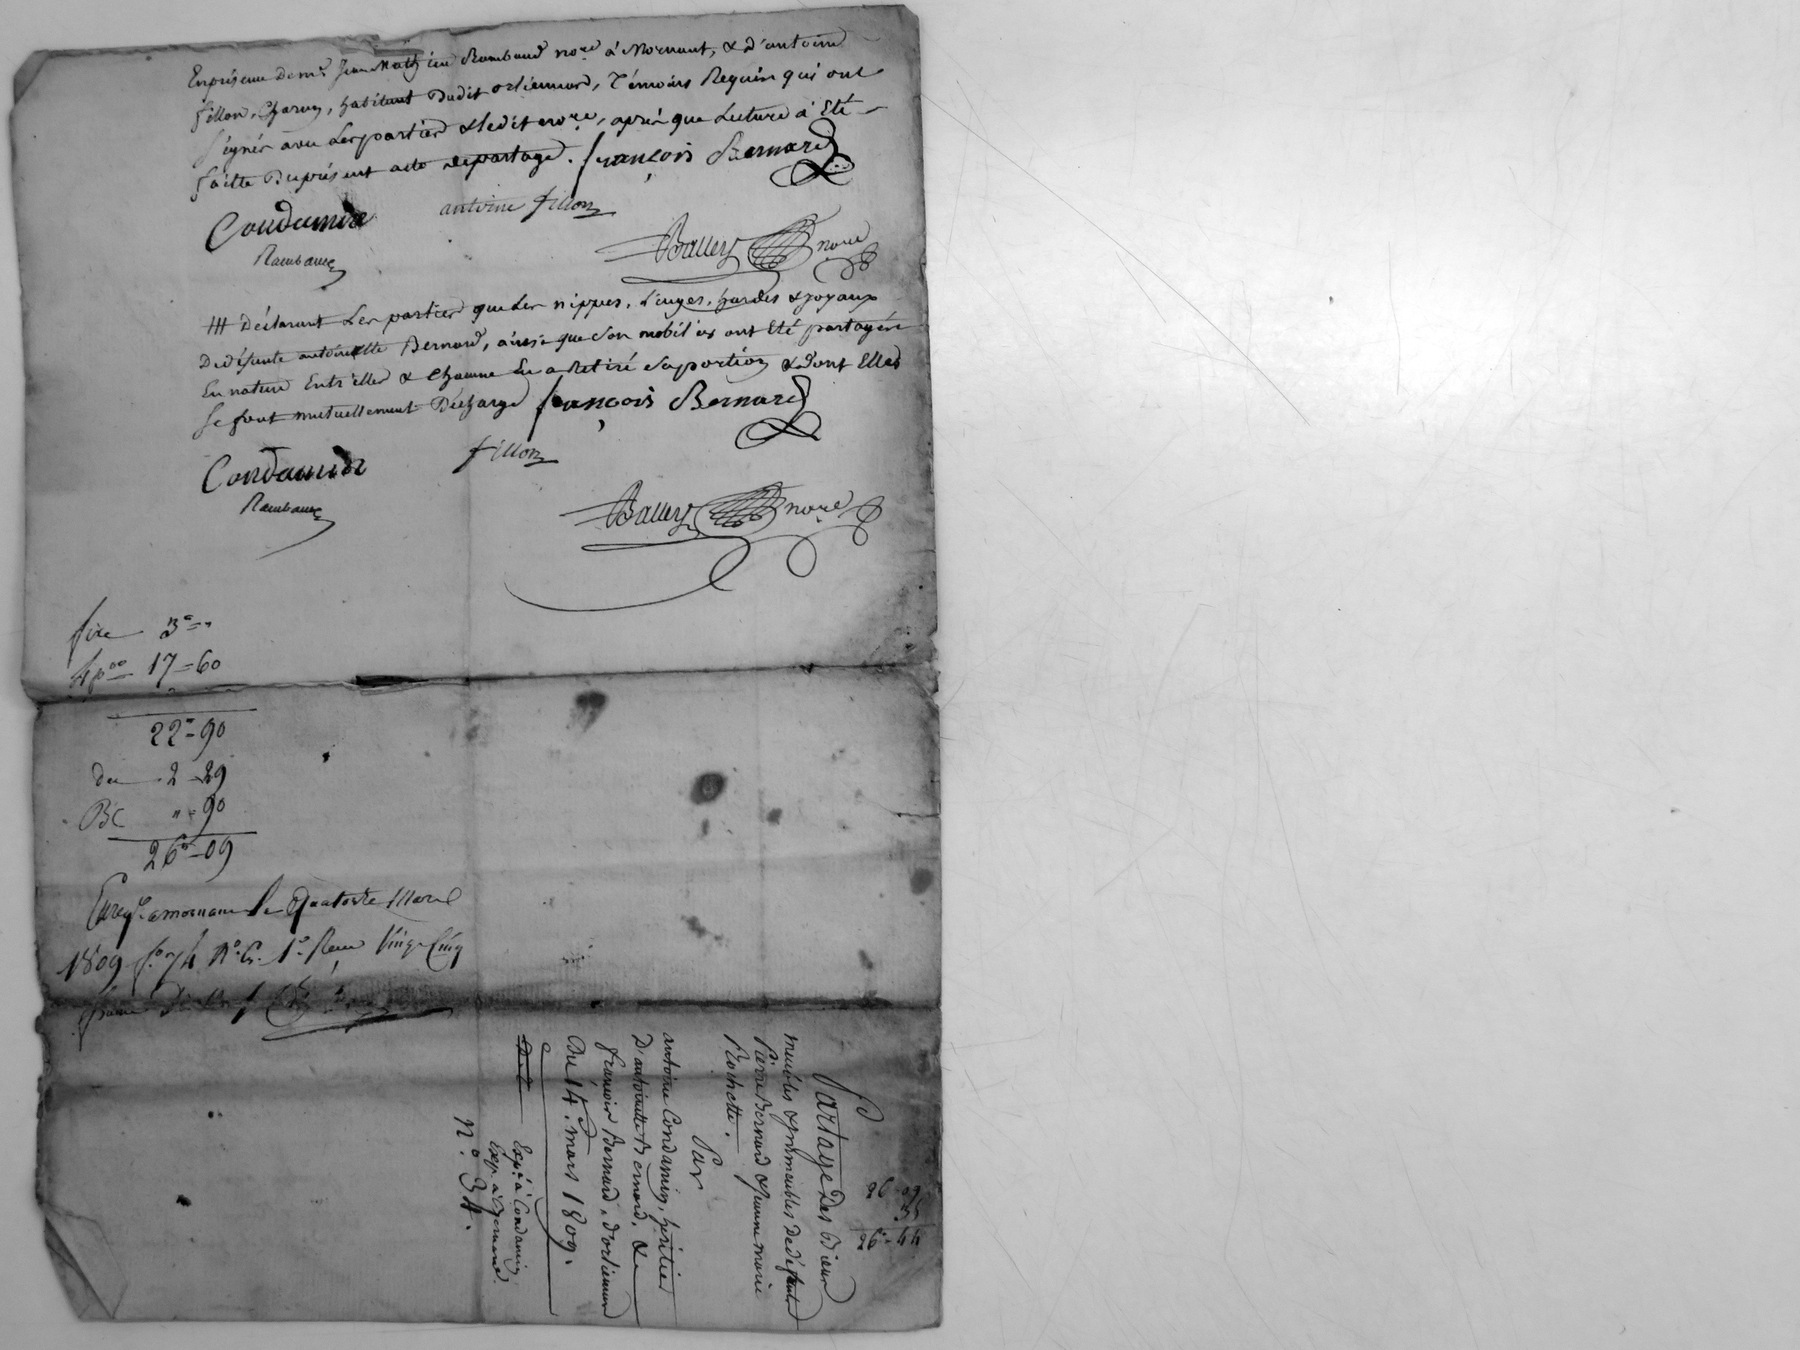 En présence de mr. Jean Mathieu Rambaud nore à Mornant, & d'antoine
fillon, Charon, habitant Dudit orliennard, Témoins Requin qui ont
signés avec Les parties & ledit nore, après que Lecture à Eté
faitte Du présent acte de partage. françois Bernard
Condamin antoine fillon
Rambaud
Balley nore
### Déclarant Les parties que les nippes, linges, hardes & joyaux
De défunte antoinette Bernard, ainsi que son mobilier ont Eté partagés
En nature Entr'elles & Chacune En a Retiré sa portion & dont Elles
se font mutuellement Décharge françois Bernard
Condamin fillon
Rambaud
Balley nore
fixe 3"="
4 p 00 17=60
22"=90
du 2-29
BC "=90
26"=09
Enregé. a mornant le quatorze Mars
1809 fo. 74 Ro. C. 1o. Recu Vingt Cinq
26-09
35
26"-44
Partage Des Biens
meubles & immeubles De défunts
Pierre Bernard & jeanne marie
Rochette.
Par
antoine Condamin, héritier
D'antoinette Bernard, &
françois Bernard, d'orliennard
Du 14. mars 1809.
Exp. à Condamin
Exp. à Bernard
No. 34.